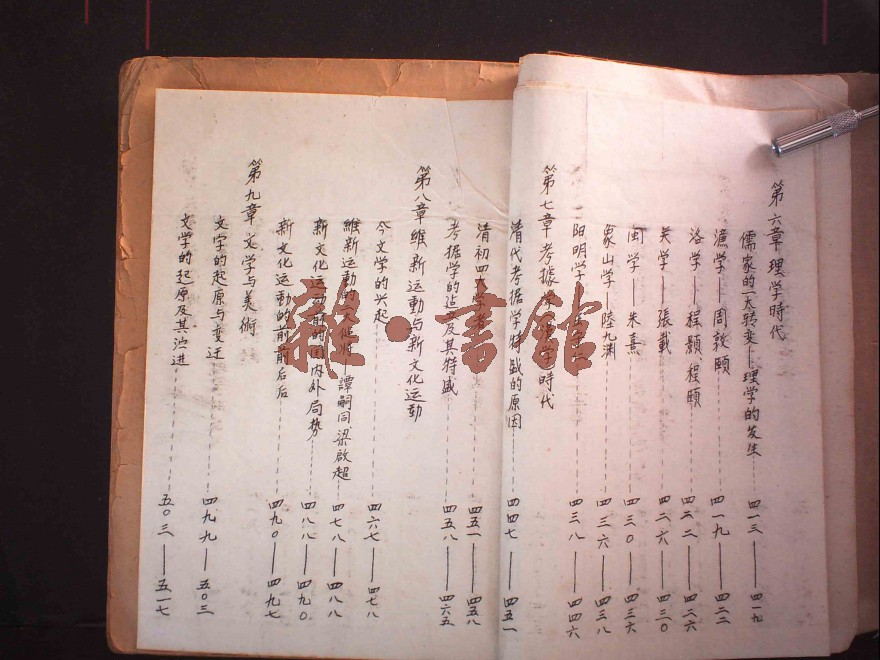 第六章 理学時代
儒家的一大转变——理学的发生 四一三——四一九
濂学——周敦頤 四一九——四二二
洛学——程顥 程頤 四二二——四二六
关学——張載 四二六——四三〇
闽学——朱熹 四三〇——四三六
象山学——陸九渊 四三六——四三八
阳明学 四三八——四四六
第七章 考據 時代
清代考据学特盛的原因 四四七——四五一
清初四大 四五一——四五八
考据学的 及其特盛 四五八——四六五
第八章 維新運動与新文化运動
今文学的兴起 四六七——四七八
維新運動的 譚嗣同 梁啟超 四七八——四八八
新文化运 的国内外局势 四八八——四九〇
新文化运動的前前后后 四九〇——四九七
第九章 文学与美術
文字的起原与变迁 四九九——五〇三
文学的起原及其演进 五〇三——五一七
雜·書館